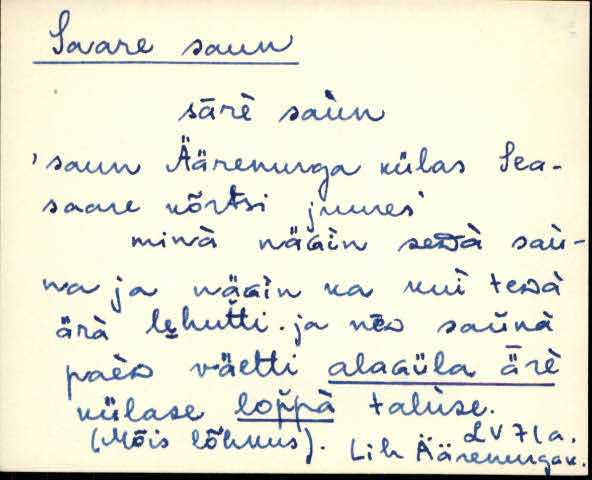 Saare saun
sārè saùn
'saun Äärenurga külas Sea-
saare kõrtsi juures'
minà näGìn seDà saù-
na ja näGìn ka kuì teDà
ärà lehutti. ja neD saŭnà
paèD väetti alaGüla ǟrè
külase lop̆pà talùse.
(Mõis lõhkus). LV 71a.
Lih Äärenurgak.